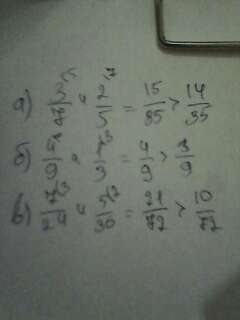 а) 3/7 и 2/5 = 15/35 > 14/35
б) 4/9 и 1/3 = 4/9 > 3/9
в) 7/24 и 5/36 = 21/72 > 10/72